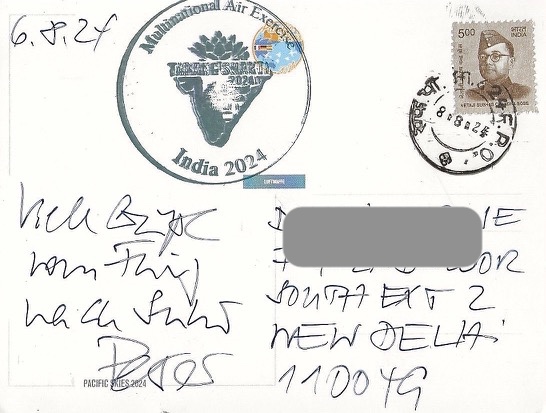 6.8.24
Multinational Air Exercise
TARANG SHAKTI
2024
India 2024
5.00
भारत
INDIA
NETAJI SUBHAS CHANDRA BOSE
8.8.24
F.P.O.
Viele Grüße
vom Flug
nach Sulur
PACIFIC SKIES 2024
SOUTH EXT 2
NEW DELHI
110049